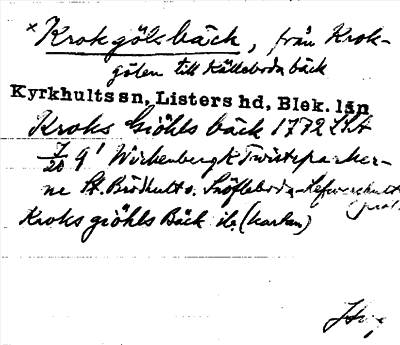 × Krokgöls bäck, från Krok-
gölen till Källeboda bäck
Kyrkhults sn, Listers hd, Blek. län
Kroks Giöhls bäck 1772 LSA
7/20 9' Wirkenberg K Twisteparker-
ne St. Brödhult o. Snöfleboda
Kroks giöhls Bäck ib. (kartan)